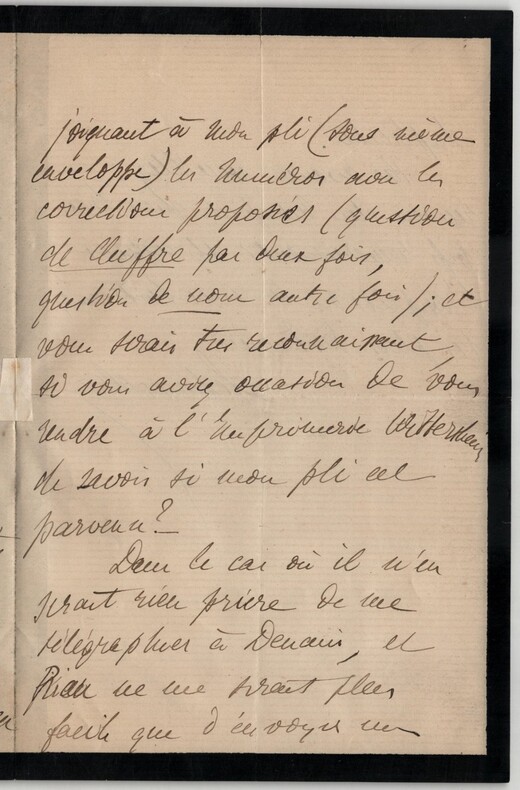 joignant à mon pli (sous même
enveloppe) les numéros avec les
corrections proposées (question
de chiffre par deux fois,
question de nom autre fois); et
vous serais très reconnaissant
si vous aviez occasion de vous
rendre à l'Imprimerie Wittersheim
de savoir si mon pli est
parvenu? —
Dans le cas où il n'en
serait rien prière de me
télégraphier à Denain, et
Rien ne me serait plus
facile que d'envoyer un